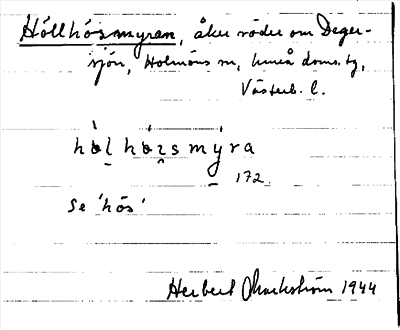 Höllhösmyran, åker söder om Deger-
sjön, Holmöns sn, Umeå doms. tg,
Västerb. l.
hòlhózsmýra
172.
se 'hös'
Herbert Markström 1944